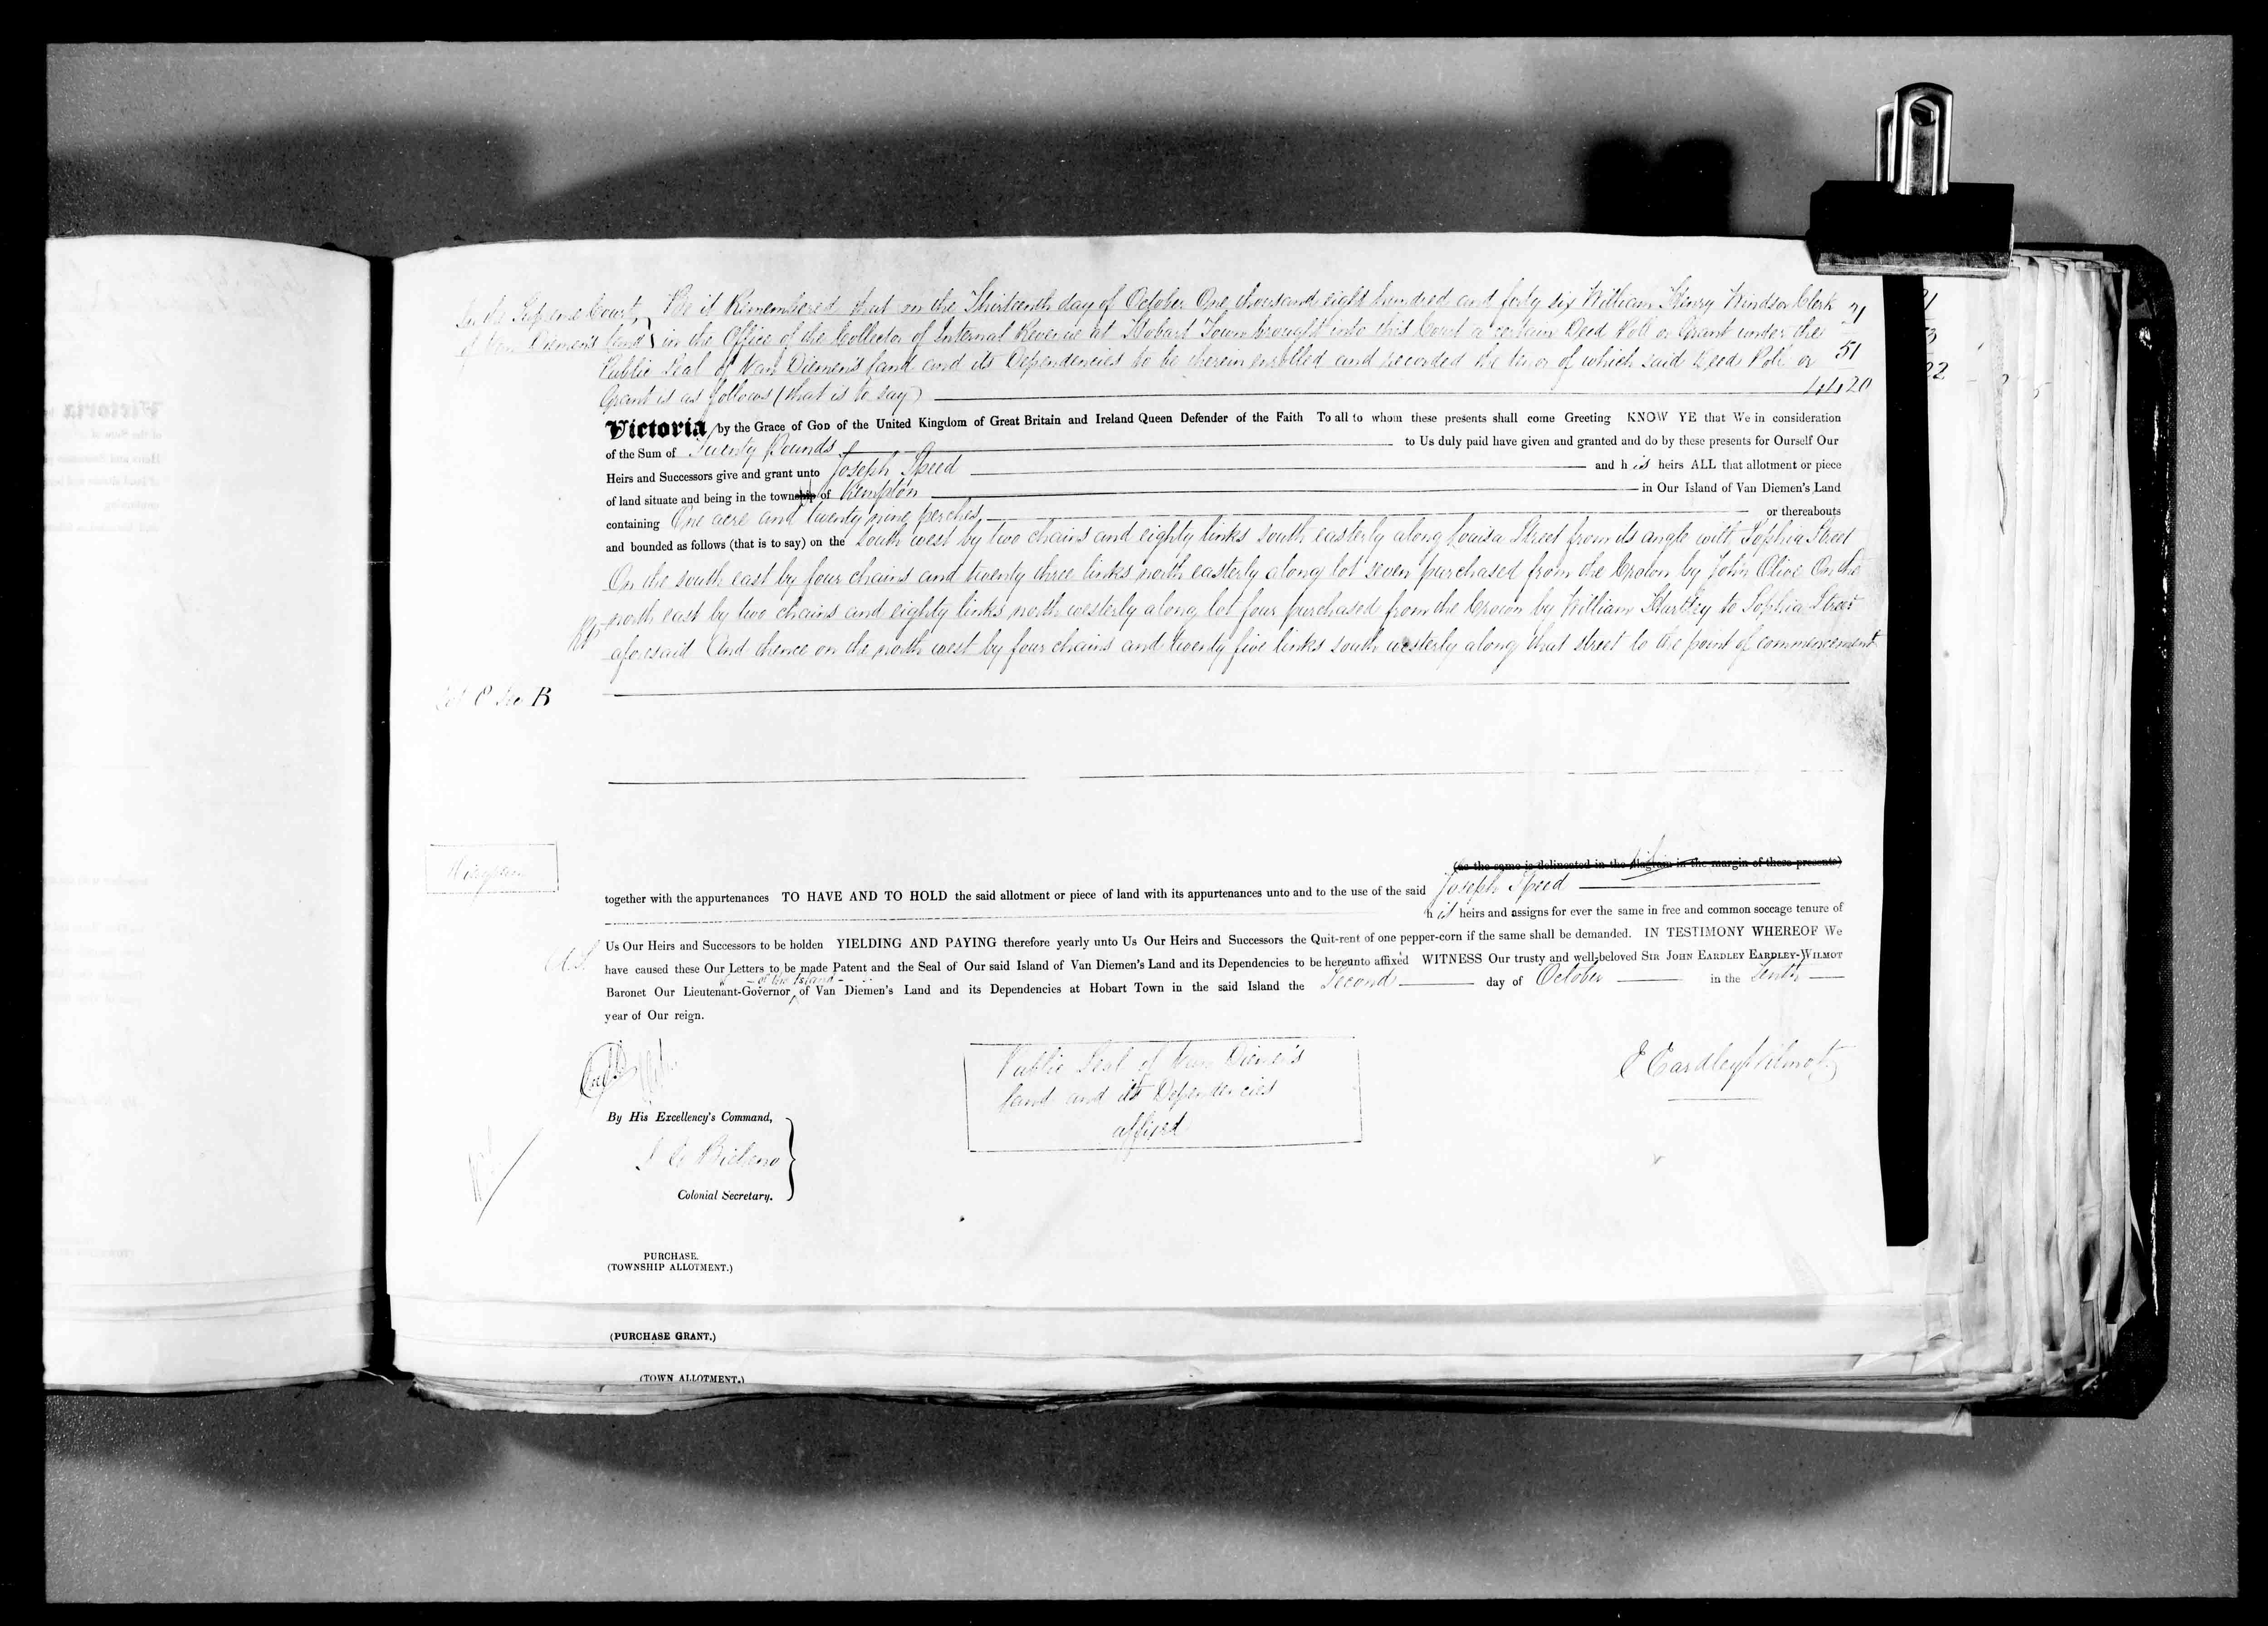 In the Supreme Court Be it Remembered that on the Thirteenth day of October One thousand eight hundred and forty six William Henry Windsor Clerk 21
of Van Diemen's Land in the Office of the Collector of Internal Revenue at Hobart Town brought into this Court a certain Deed Poll or Grant under the
Public Seal of Van Diemen's Land and its Dependencies to be herein enrolled and recorded the tenor of which said Deed Poll or 51
Grant is as follows (that is to say)
Victoria by the Grace of GOD of the United Kingdom of Great Britain and Ireland Queen Defender of the Faith To all to whom these presents shall come Greeting KNOW YE that We in consideration
of the Sum of Twenty Pounds to Us duly paid have given and granted and do by these presents for Ourself Our
Heirs and Successors give and grant unto Joseph Speed and his heirs ALL that allotment or piece
of land situate and being in the township of Kempton in Our Island of Van Diemen's Land
containing One acre and twenty nine perches or thereabouts
and bounded as follows (that is to say) on the South west by two chains and eighty links south easterly along Louisa Street from its angle with Sophia Street
On the south east by four chains and twenty three links north easterly along lot seven purchased from the Crown by John Clive On the
north east by two chains and eighty links north westerly along lot four purchased from the Crown by William Hartley to Sophia Street
aforesaid And thence on the north west by four chains and twenty five links south westerly along that street to the point of commencement
B
(as the same is delineated in the diagram in the margin of these presents)
together with the appurtenances TO HAVE AND TO HOLD the said allotment or piece of land with its appurtenances unto and to the use of the said Joseph Speed
his heirs and assigns for ever the same in free and common soccage tenure of
Us Our Heirs and Successors to be holden YIELDING AND PAYING therefore yearly unto Us Our Heirs and Successors the Quit-rent of one pepper-corn if the same shall be demanded. IN TESTIMONY WHEREOF We
have caused these Our Letters to be made Patent and the Seal of Our said Island of Van Diemen's Land and its Dependencies to be hereunto affixed WITNESS Our trusty and well-beloved SIR JOHN EARDLEY EARDLEY-WILMOT
of the Island
Baronet Our Lieutenant-Governor of Van Diemen's Land and its Dependencies at Hobart Town in the said Island the Second day of October in the Tenth
year of Our reign.
Public Seal of Van Diemen's
Land and its Dependencies
affixed
E Eardley Wilmot
By His Excellency's Command,
J E Bicheno
Colonial Secretary.
PURCHASE.
(TOWNSHIP ALLOTMENT.)
(PURCHASE GRANT.)
(TOWN ALLOTMENT.)